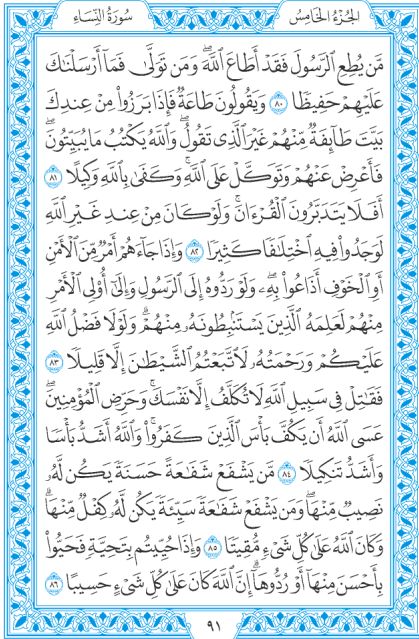 الجُزْءُ الخَامِسُ
سُورَةُ النِّسَاءِ
مَّن يُطِعِ ٱلرَّسُولَ فَقَدْ أَطَاعَ ٱللَّهَۖ وَمَن تَوَلَّىٰ فَمَآ أَرْسَلْنَٰكَ
عَلَيْهِمْ حَفِيظًا ٨٠ وَيَقُولُونَ طَاعَةٌ فَإِذَا بَرَزُوا۟ مِنْ عِندِكَ
بَيَّتَ طَآئِفَةٌ مِّنْهُمْ غَيْرَ ٱلَّذِى تَقُولُۖ وَٱللَّهُ يَكْتُبُ مَا يُبَيِّتُونَۖ
فَأَعْرِضْ عَنْهُمْ وَتَوَكَّلْ عَلَى ٱللَّهِۚ وَكَفَىٰ بِٱللَّهِ وَكِيلًا ٨١
أَفَلَا يَتَدَبَّرُونَ ٱلْقُرْءَانَۚ وَلَوْ كَانَ مِنْ عِندِ غَيْرِ ٱللَّهِ
لَوَجَدُوا۟ فِيهِ ٱخْتِلَٰفًا كَثِيرًا ٨٢ وَإِذَا جَآءَهُمْ أَمْرٌ مِّنَ ٱلْأَمْنِ
أَوِ ٱلْخَوْفِ أَذَاعُوا۟ بِهِۦۖ وَلَوْ رَدُّوهُ إِلَى ٱلرَّسُولِ وَإِلَىٰٓ أُو۟لِى ٱلْأَمْرِ
مِنْهُمْ لَعَلِمَهُ ٱلَّذِينَ يَسْتَنۢبِطُونَهُۥ مِنْهُمْۗ وَلَوْلَا فَضْلُ ٱللَّهِ
عَلَيْكُمْ وَرَحْمَتُهُۥ لَٱتَّبَعْتُمُ ٱلشَّيْطَٰنَ إِلَّا قَلِيلًا ٨٣
فَقَٰتِلْ فِى سَبِيلِ ٱللَّهِ لَا تُكَلَّفُ إِلَّا نَفْسَكَۚ وَحَرِّضِ ٱلْمُؤْمِنِينَۖ
عَسَى ٱللَّهُ أَن يَكُفَّ بَأْسَ ٱلَّذِينَ كَفَرُوا۟ۚ وَٱللَّهُ أَشَدُّ بَأْسًا
وَأَشَدُّ تَنكِيلًا ٨٤ مَّن يَشْفَعْ شَفَٰعَةً حَسَنَةً يَكُن لَّهُۥ
نَصِيبٌ مِّنْهَاۖ وَمَن يَشْفَعْ شَفَٰعَةً سَيِّئَةً يَكُن لَّهُۥ كِفْلٌ مِّنْهَاۗ
وَكَانَ ٱللَّهُ عَلَىٰ كُلِّ شَىْءٍ مُّقِيتًا ٨٥ وَإِذَا حُيِّيتُم بِتَحِيَّةٍ فَحَيُّوا۟
بِأَحْسَنَ مِنْهَآ أَوْ رُدُّوهَآۗ إِنَّ ٱللَّهَ كَانَ عَلَىٰ كُلِّ شَىْءٍ حَسِيبًا ٨٦
٩١